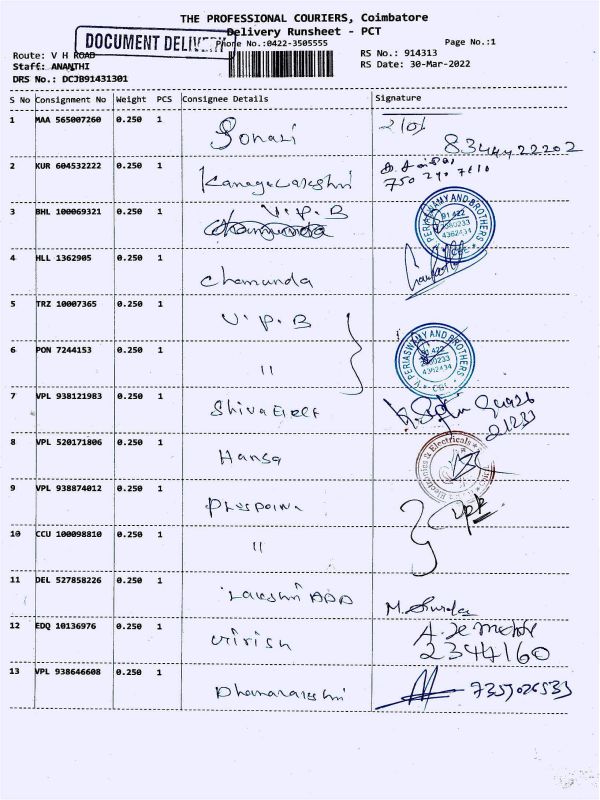 THE PROFESSIONAL COURIERS, Coimbatore
Delivery Runsheet - PCT
DOCUMENT DELIVERY
Phone No.:0422-3505555
Page No.:1
Route: V H ROAD
RS No.: 914313
Staff: ANANTHI
RS Date: 30-Mar-2022
DRS No.: DCJB91431301
S No Consignment No Weight PCS Consignee Details Signature
1 MAA 565007260 0.250 1
2 KUR 604532222 0.250 1
3 BHL 100069321 0.250 1 V.P.B
V. PERIASWAMY AND BROTHERS
4362434
CBE
4 HLL 1362905 0.250 1 Chamunda
5 TRZ 10007365 0.250 1 V.P.B
6 PON 7244153 0.250 1 "
V. PERIASWAMY AND BROTHERS
4362434
CBE
7 VPL 938121983 0.250 1
8 VPL 520171806 0.250 1 Hansa
Electronics & Electricals
9 VPL 938874012 0.250 1
10 CCU 100098810 0.250 1 "
11 DEL 527858226 0.250 1
12 EDQ 10136976 0.250 1
2344160
13 VPL 938646608 0.250 1